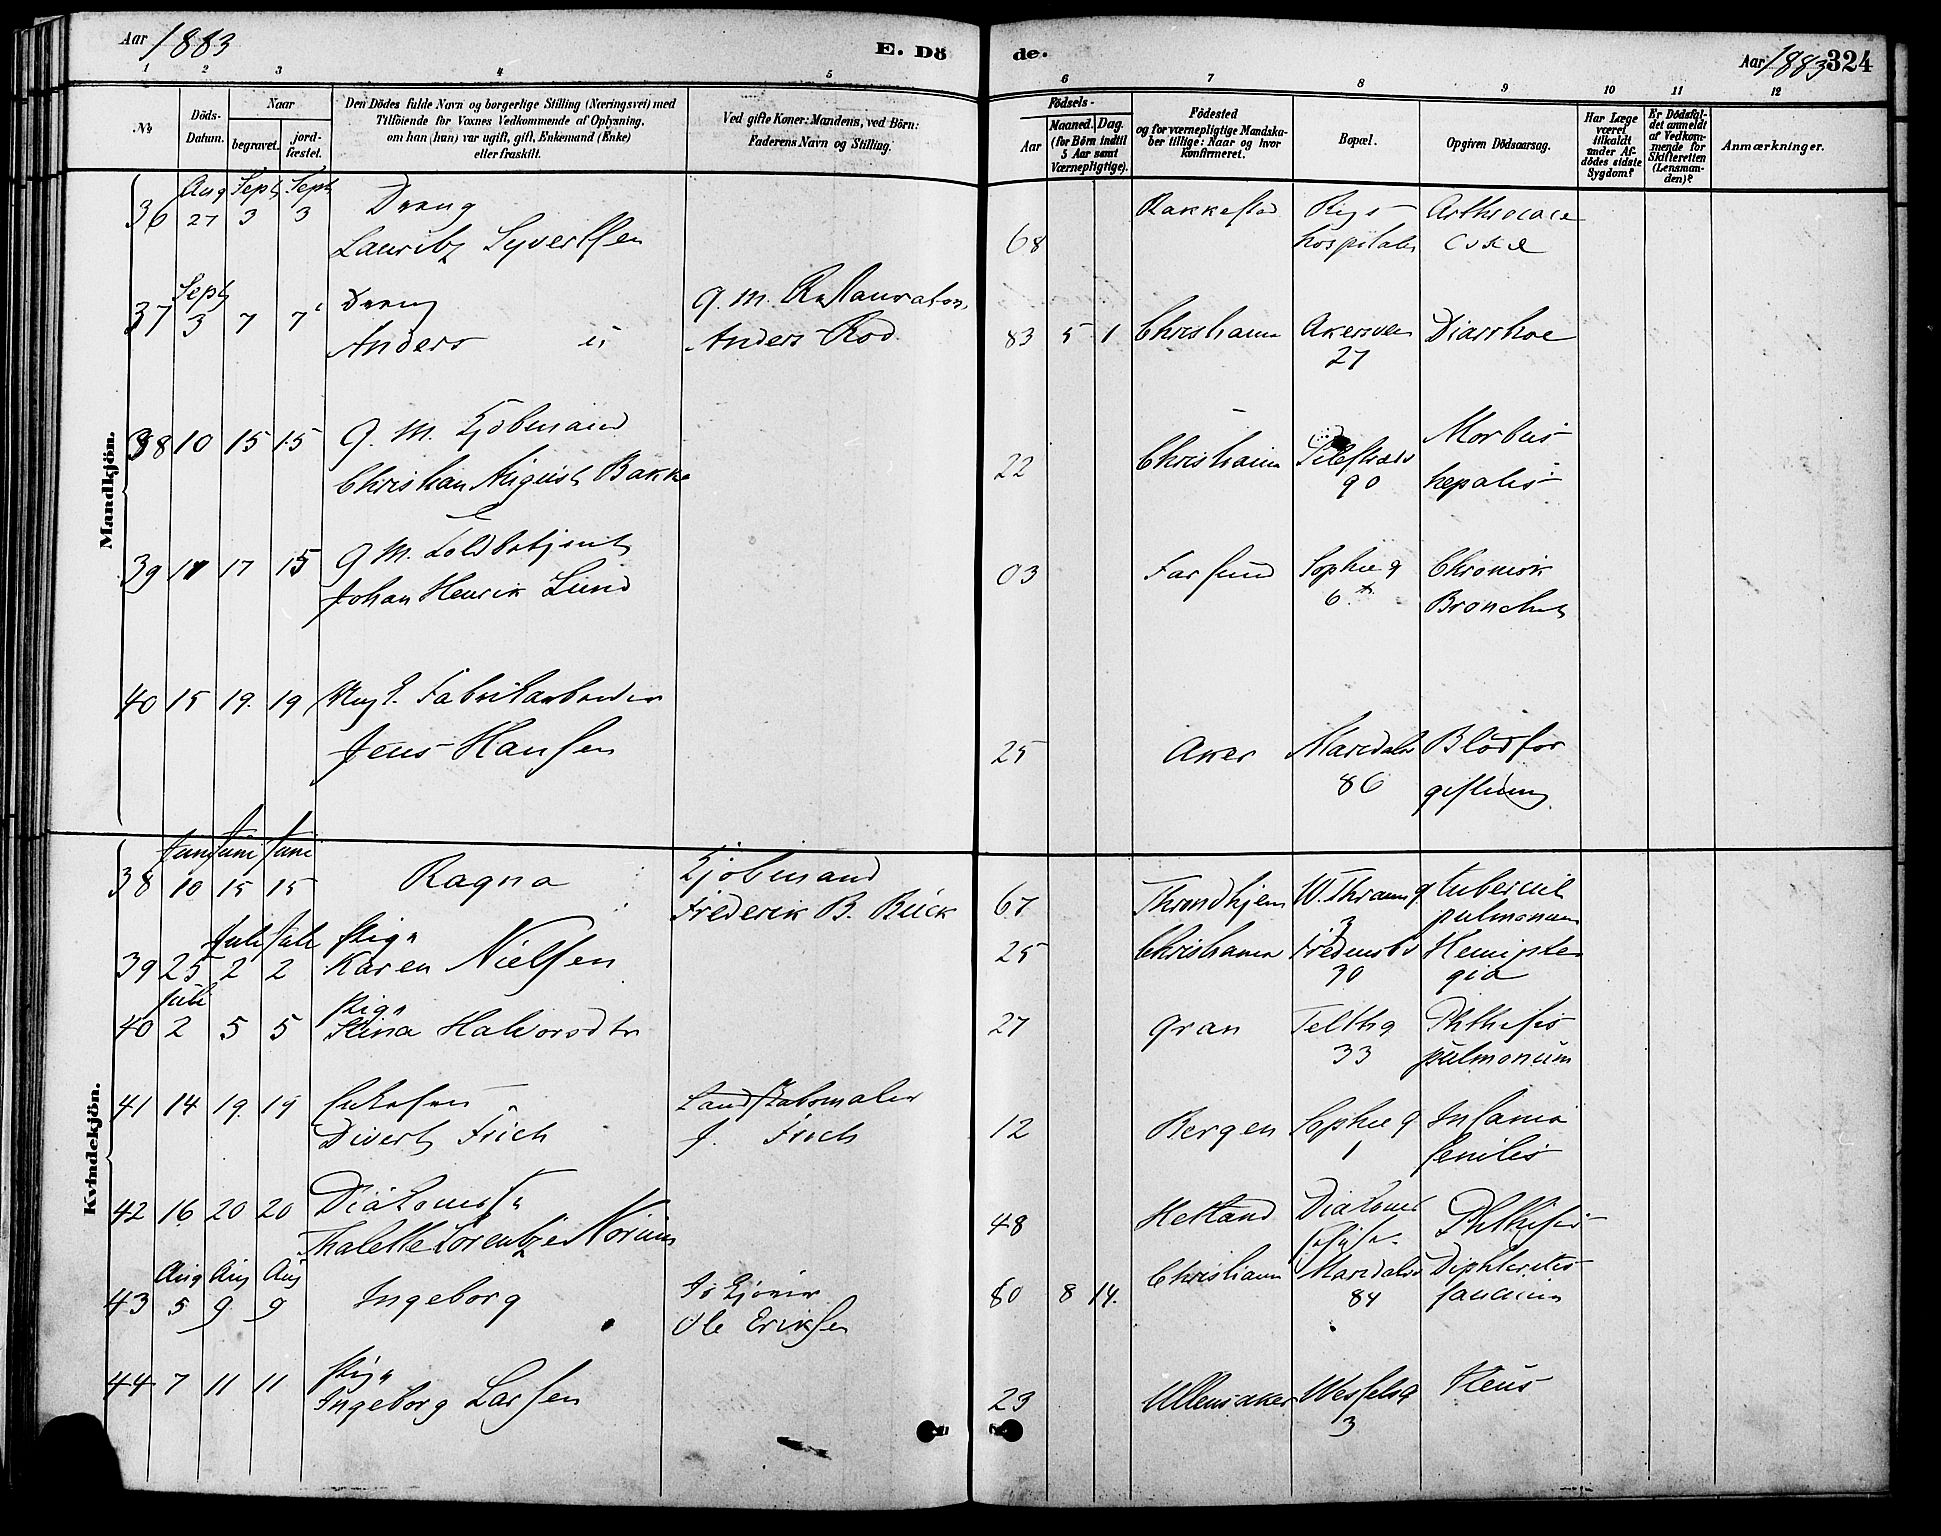 Aar 1883
E. Dö
de.
Aar 1883 324
1 2 3 4 5 6 7 8 9 10 11 12
No
Döds-
Datum.
Naar
begravet.
jord-
fæstet.
Den Dödes fulde Navn og borgerlige Stilling (Næringsvei) med
Tilföiende for Voxnes Vedkommende af Oplysning,
om han (hun) var ugift, gift, Enkemand (Enke)
eller fraskilt.
Ved gifte Koner: Mandens, ved Börn:
Faderens Navn og Stilling.
Födsels-
Aar
Maaned. Dag.
(for Börn indtil
5 Aar samt
Værnepligtige).
Födested
og for værnepligtige Mandska-
ber tillige: Naar og hvor
konfirmeret.
Bopæl.
Opgiven Dödsaarsag.
Har Læge
været
tilkaldt
under Af-
dödes sidste
Sygdom?
Er Dödsfal-
det anmeldt
af Vedkom-
mende for
Skifteretten
(Lensman-
den)?
Anmærkninger.
Mandkjön.
Aug Sept Sept
36 27 3 3 Dreng
Lauritz Syvertsen
68 Rakkestad Rigs-
hospitalet
Arthrocace
coxæ
Sept
37 3 7 7 Dreng
Anders
g. m. Restauratør
Anders Rod
83 5 1 Christiania Akersvei
27
Diarrhoe
38 10 15 15 g. M. Kjøbmand
Christian August Bakke
22 Christiania Pilestræd
90
Morbus
hepatis
39 11 17 15 g M. Toldbetjent
Johan Henrik Lund
03 Farsund Sophieg
6
Chronisk
Bronchit
40 15 19. 19 Ung k. Fabrikarbeider
Jens Hansen
25 Aker Maridalsv
86
Blodfor
giftning
Kvindekjön.
Juni Juni Juni
38 10 15 15 Ragna
Kjøbmand
Frederik B. Buck
67 Throndhjem W. Thraneg
3
tubercul
pulmonum
Juli Juli
39 25 2 2 Pige
Karen Nielsen
25 Christiania Fredensbv
30
Hemiple
gia
Juli
40 2 5 5 Pige
Stina Halvorsdtr
27 Gran Telthg
33
Phthisis
pulmonum
41 14 19. 19 Enkefru
Divert Frich
Landskabsmaler
J. Frich
12 Bergen Sophieg
1
Insania
senilis
42 16 20 20 Diakonisse
Thalette Lorentze Norum
48 Hetland Diakonis
Phthisis
Aug Aug Aug
43 5 9 9 Ingeborg
Ole Eriksen
80 8 14. Christiania Maridalsv
84
Diphteritis
faucium
44 7 11 11 Pige
Ingeborg Larsen
23 Ullensaker Wesselsg
3
Ileus